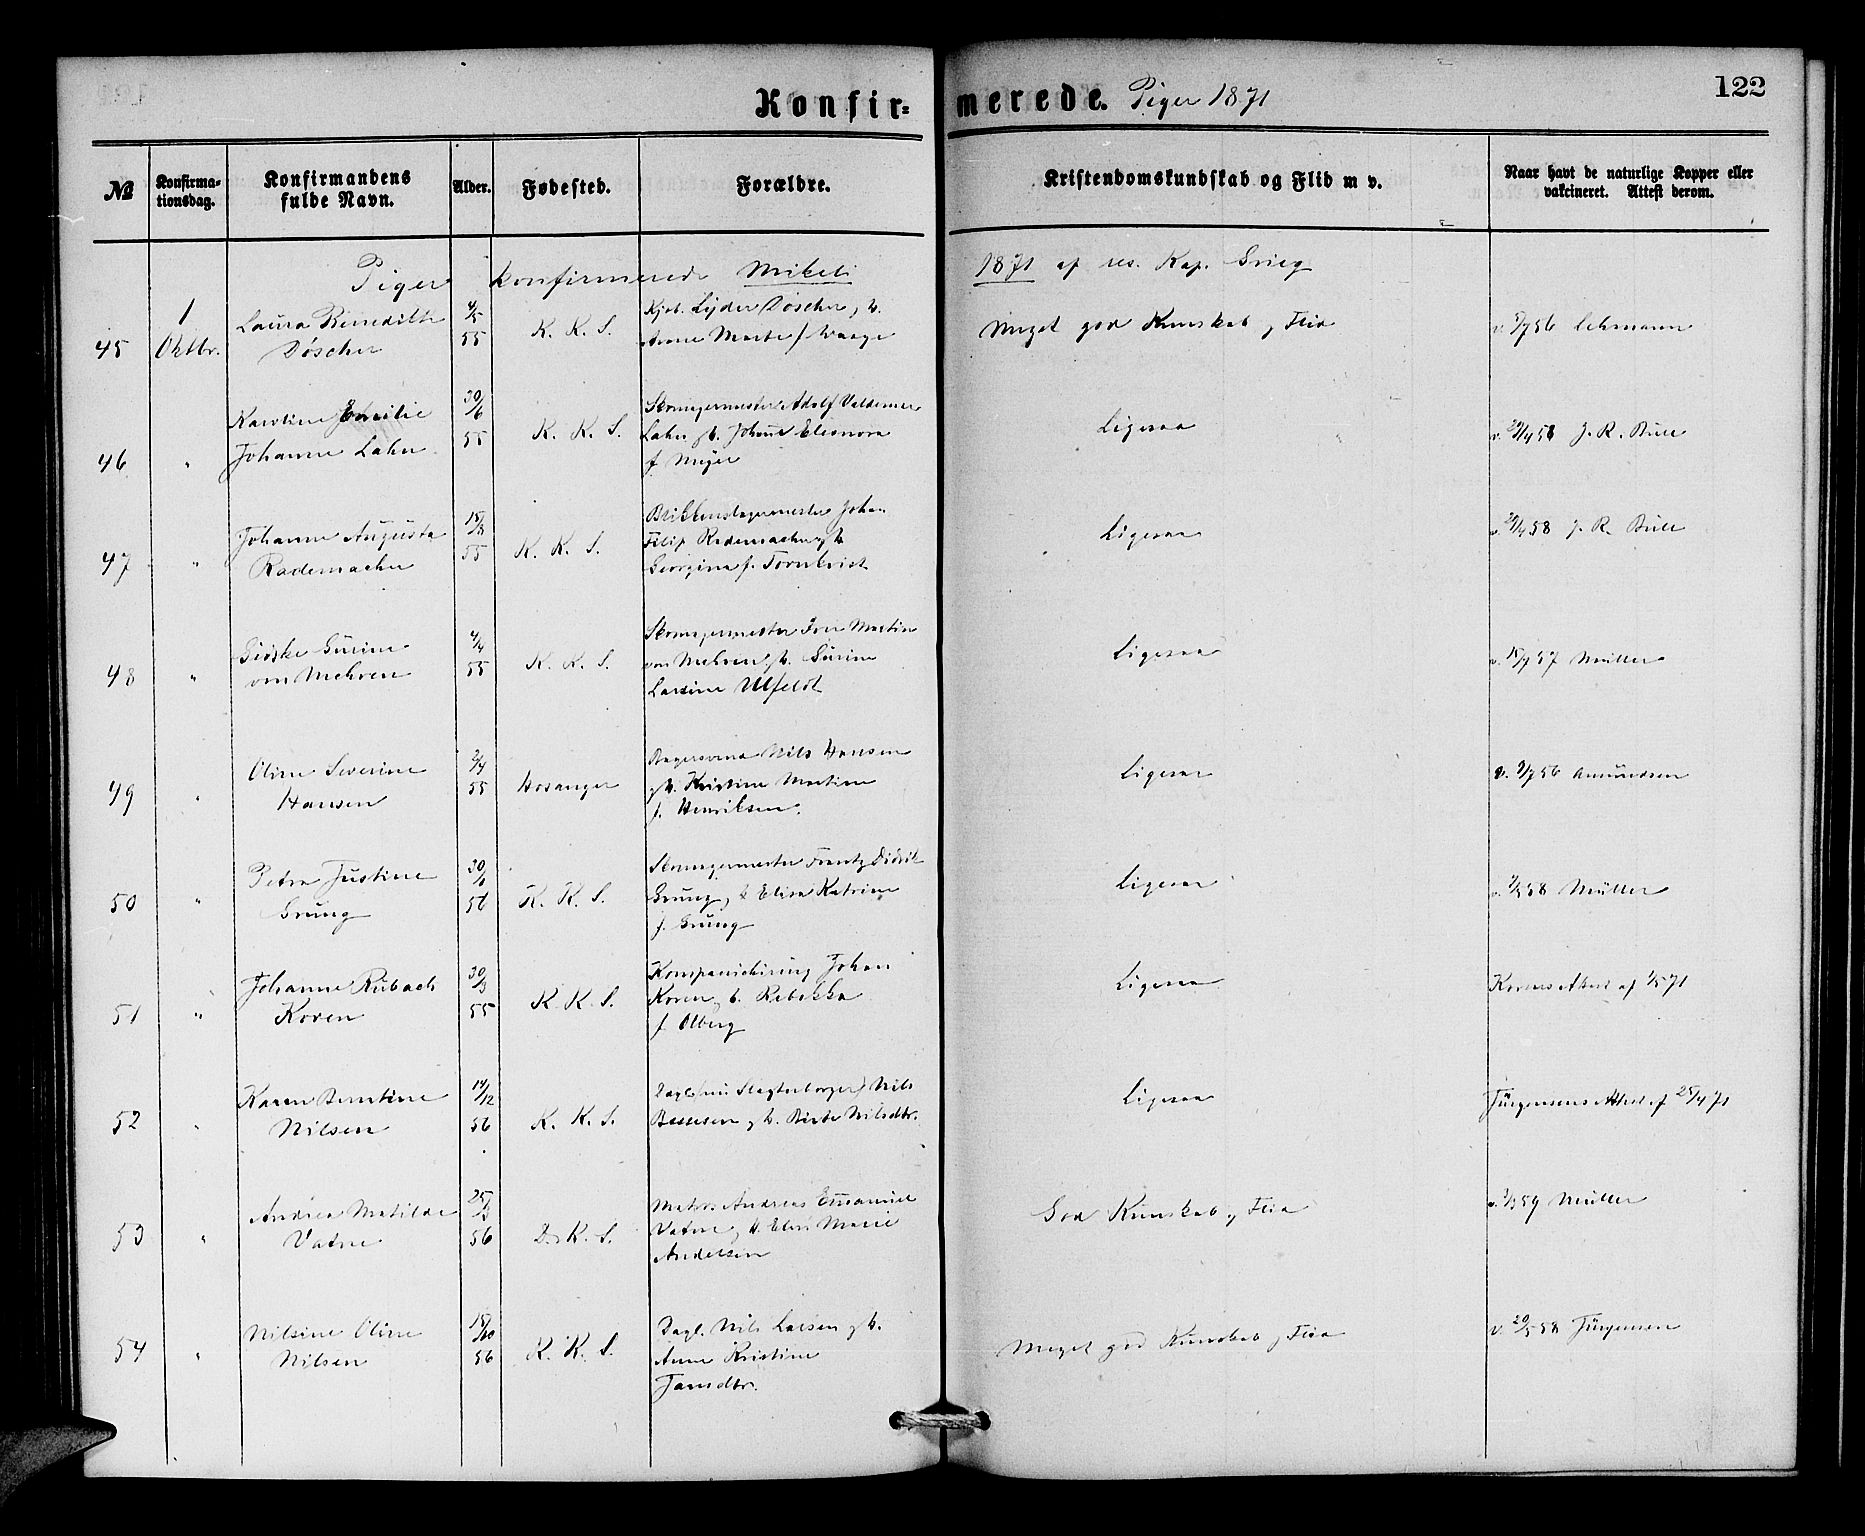 122
Konfirmerede. Piger 1871
№
Konfirma-
tionsdag.
Konfirmandens
fulde Navn.
Alder.
Fødested.
Forældre.
Kristendomskundskab og Flid m v.
Naar havt de naturlige Kopper eller
vakcineret. Attest derom.
Piger konfirmerede Mikeli 1871 af res. Kap. Grieg
45
1
Oktbr.
Laura Benedikte
Döscher
4/5
55
K. K. S.
Lyder Döscher, h.
Anne Marte f. Waage
Meget god Kunskab og Flid
v. 56 Lehmann
46
"
Karoline Emilie
Johanne Lahn
30/6
55
K. K. S.
Skomagermester Adolf Valdemar
Lahn og h. Eleonora
f. Meyer
Ligesaa
v. 29/4 58 J. R. Bull
47
"
Johanne Augusta
Rademacher
15/8
55
K. K. S.
Blikkenslagermester Johan
Filip Rademacher og h.
Georgina f. Tornkvist
Ligesaa
v. 29/4 58 J. R. Bull
48
"
Gurine
von Mehren
4/4
55
K. K. S.
Skomagermester Iver Martin
von Mehren og h. Gurine
Larsine Ulfeldt
Ligesaa
v. 15/7 57 Müller
49
"
Oline Severine
Hansen
2/4
55
Hosanger
Bagersvend Nils Hansen
og h. Kristine Martine
f. Henriksen.
Ligesaa
v. 9/7 56 Amundsen
50
"
Petra Justine
Grung
30/6
56
K. K. S.
Skomagermester Frantz Didrik
Grung, h. Elisa Katrine
f. Grung
Ligesaa
v. 58 Müller
51
"
Johanne Rubach
Koren
30/3
55
K. K. S.
Kompanichirurg Johan
Koren og h. Rebekka
f. Olberg
Ligesaa
Korens Attest af 1/5 71
52
"
Karen Berntine
Nilsen
14/12
56
K. K. S.
Nils
og h. Birte Nilsdtr.
Ligesaa
Jürgensens Attest af 25/4 71
53
"
Andrea Matilde
Vatne
25/3
56
D. K. S.
Matros Andreas Emanuel
Vatne og h. Elen Marie
Andersen
God Kunskab og Flid
v. 59 Müller
54
"
Nilsine Oline
Nilsen
15/10
56
K. K. S.
Dagl. Nils Larsen og h.
Anne Kristine
Meget god Kundskab og Flid
v. 20/5 58 Jürgensen